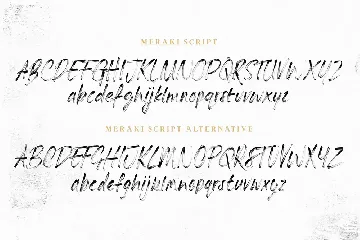 MERAKI SCRIPT
ABCDEFGHIJKLMNOPQRSTUVWXYZ
abcdefghijklmnopqrstuvwxyz
MERAKI SCRIPT ALTERNATIVE
ABCDEFGHIJKLMNOPQRSTUVWXYZ
abcdefghijklmnopqrstuvwxyz